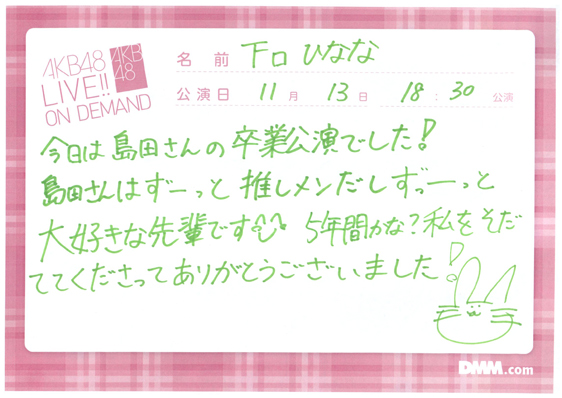 AKB48
LIVE!!
ON DEMAND
AKB
48
名前 下口ひなな
公演日 11月 13日 18:30 公演
今日は島田さんの卒業公演でした!
島田さんはずーっと推しメンだしずっーっと
大好きな先輩です 5年間かな?私をそだ
ててくださってありがとうございました!
DMM.com